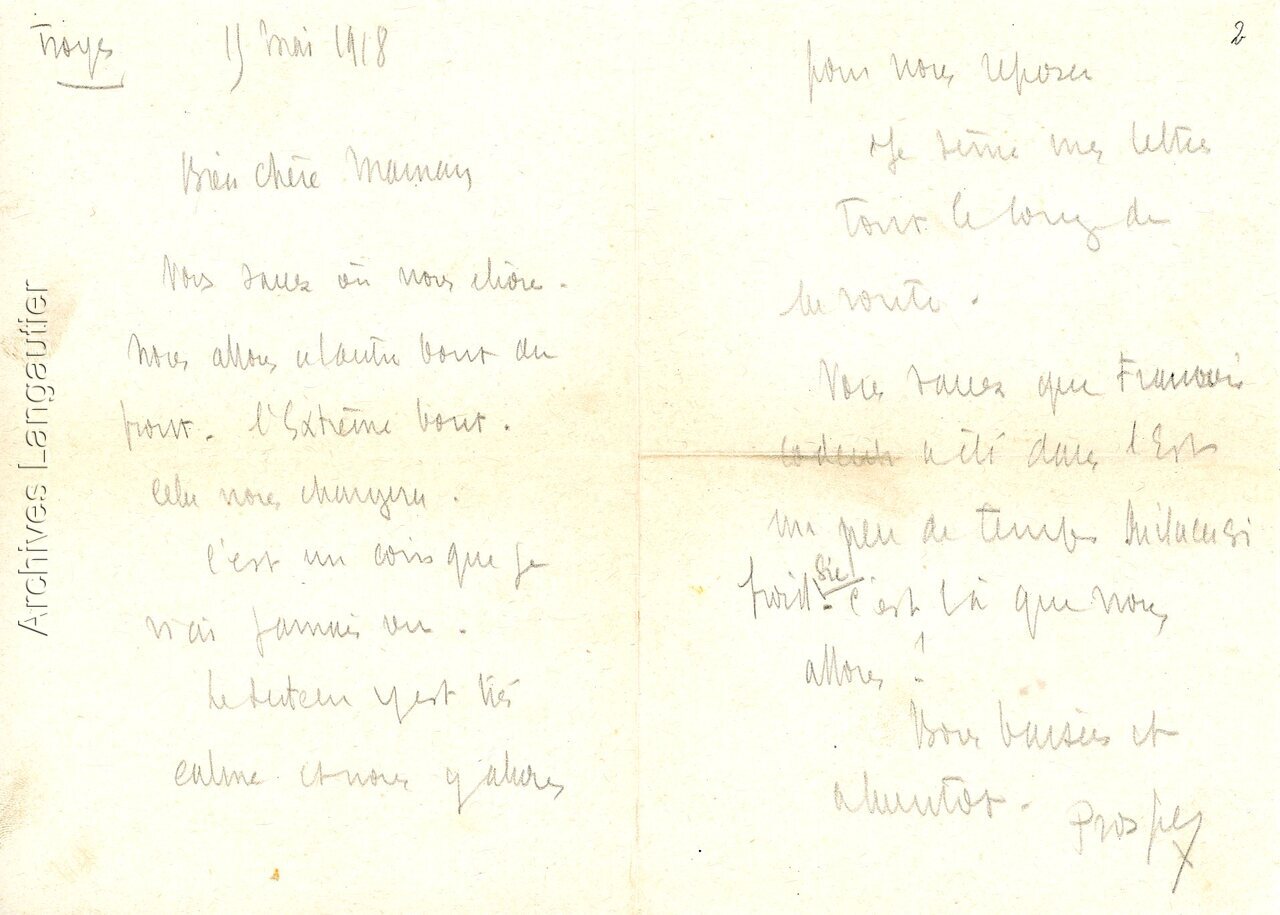 Troyes 15 Mai 1918
Bien chère Maman
Vous savez où nous étions.
Nous allons à l'autre bout du
front. l'Extrême bout.
Cela nous changera.
C'est un coin que je
n'ai jamais vu.
Le secteur y est très
calme et nous y allons
2
pour nous reposer
Je sème mes lettres
tout le long de
la route.
Vous savez que François
a été dans l'Est
un peu de temps
(sic)
froid. C'est là que nous
allons!
Bons baisers et
à bientôt.
Prosper
Archives Langautier